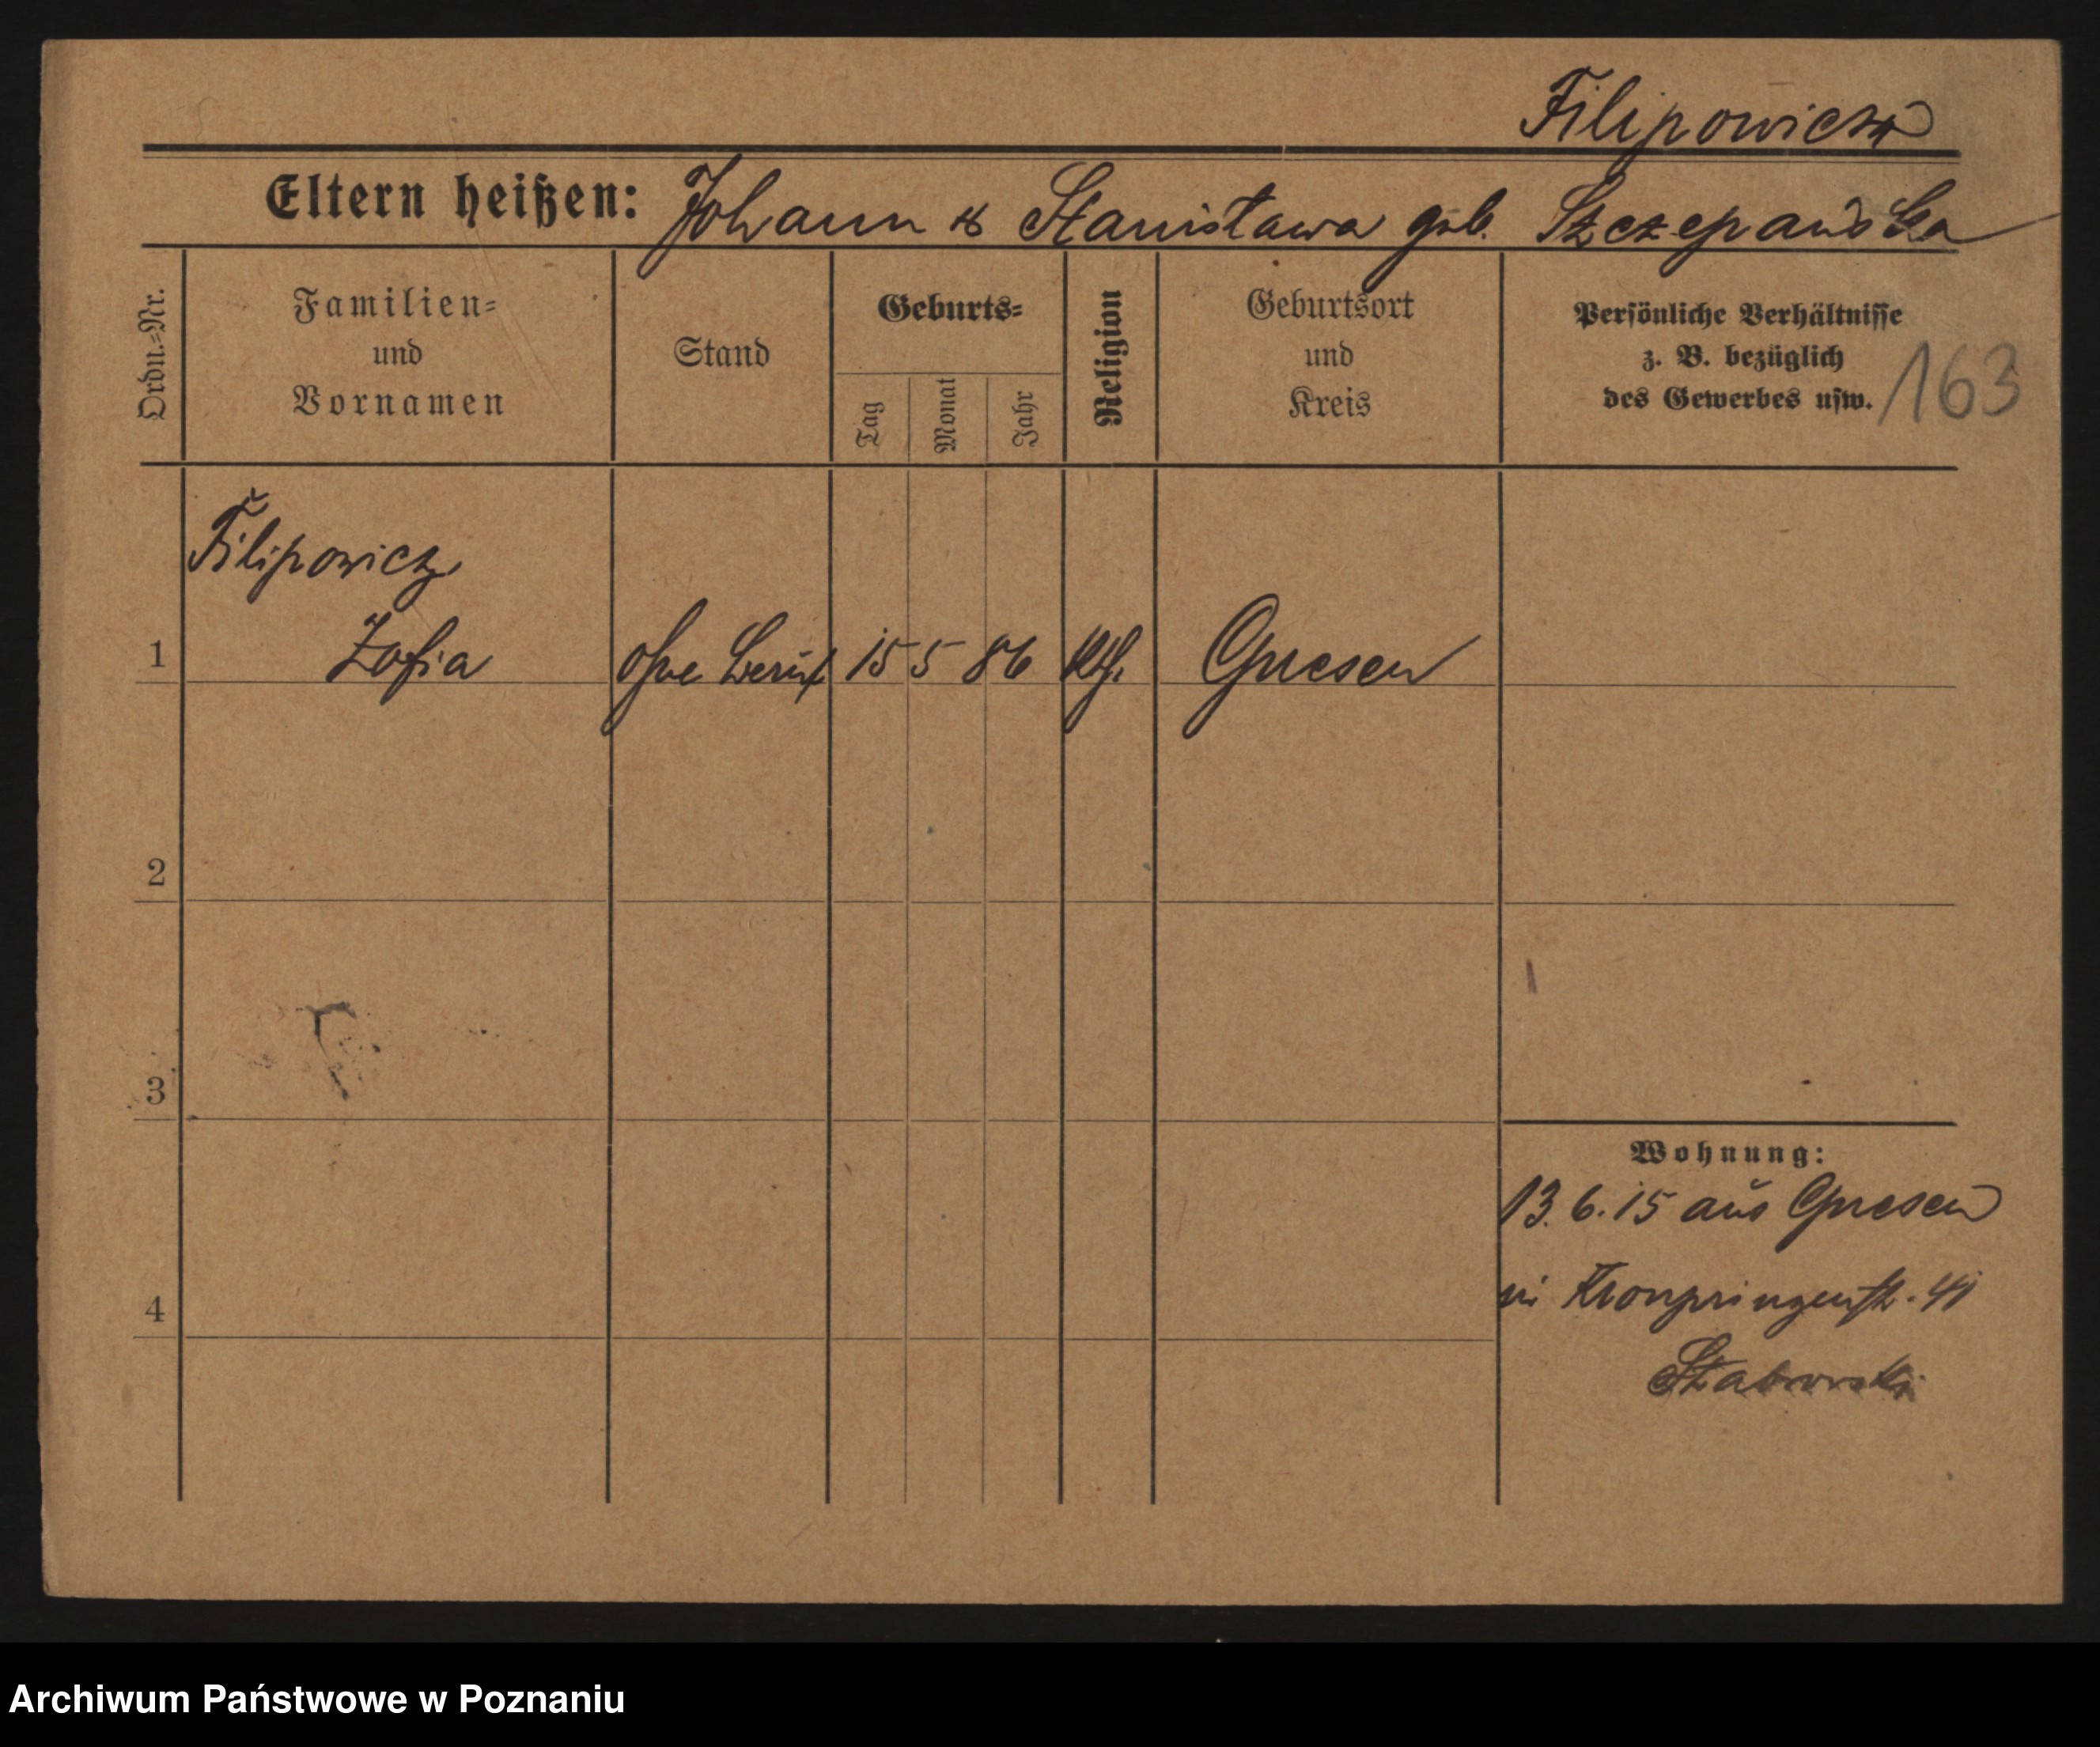 Filipowicz
Eltern heißen: Johann & Stanisława geb. Szczepańska
Ordn.-Nr.
Familien- und Vornamen
Stand
Geburts-
Tag
Monat
Jahr
Religion
Geburtsort und Kreis
Persönliche Verhältnisse
z. B. bezüglich
des Gewerbes usw.
163
Filipowicz
1 Zofia ohne Beruf 15 5 86 kth. Gnesen
2
3
4
Wohnung:
13.6.15 aus Gnesen
Kronprinzenstr. 41
Archiwum Państwowe w Poznaniu